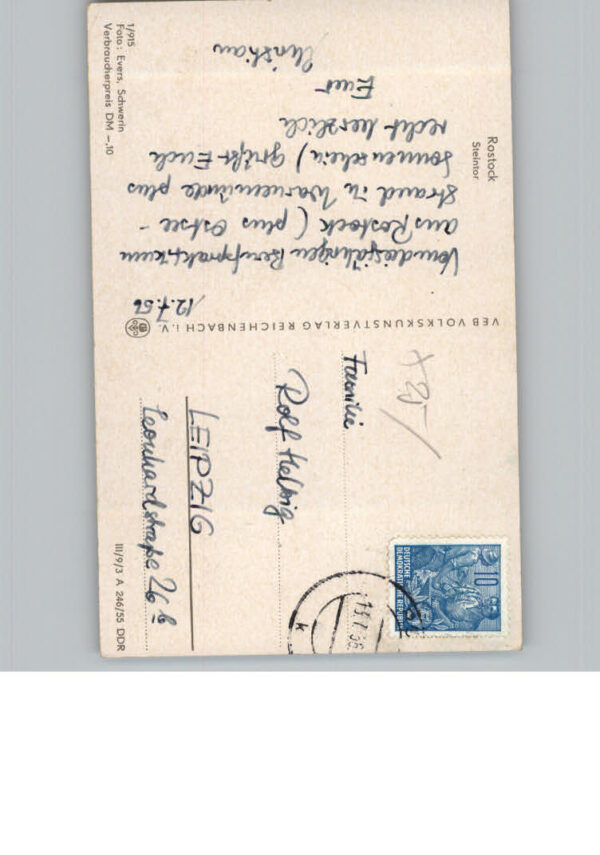 Rostock
Steintor
12.7.56
Vom diesjährigen Berufspraktikum
aus Rostock (plus Ostsee-
strand in Warnemünde plus
Sonnenschein) grüßt Euch
recht herzlich
Euer
Christian
1/915
Foto: Evers, Schwerin
Verbraucherpreis DM -,10
VEB VOLKSKUNSTVERLAG REICHENBACH i. V.
Familie
Rolf Helbig
LEIPZIG
Leonhardstraße 26 b
III/9/3 A 246/55 DDR
10
DEUTSCHE
DEMOKRATISCHE REPUBLIK